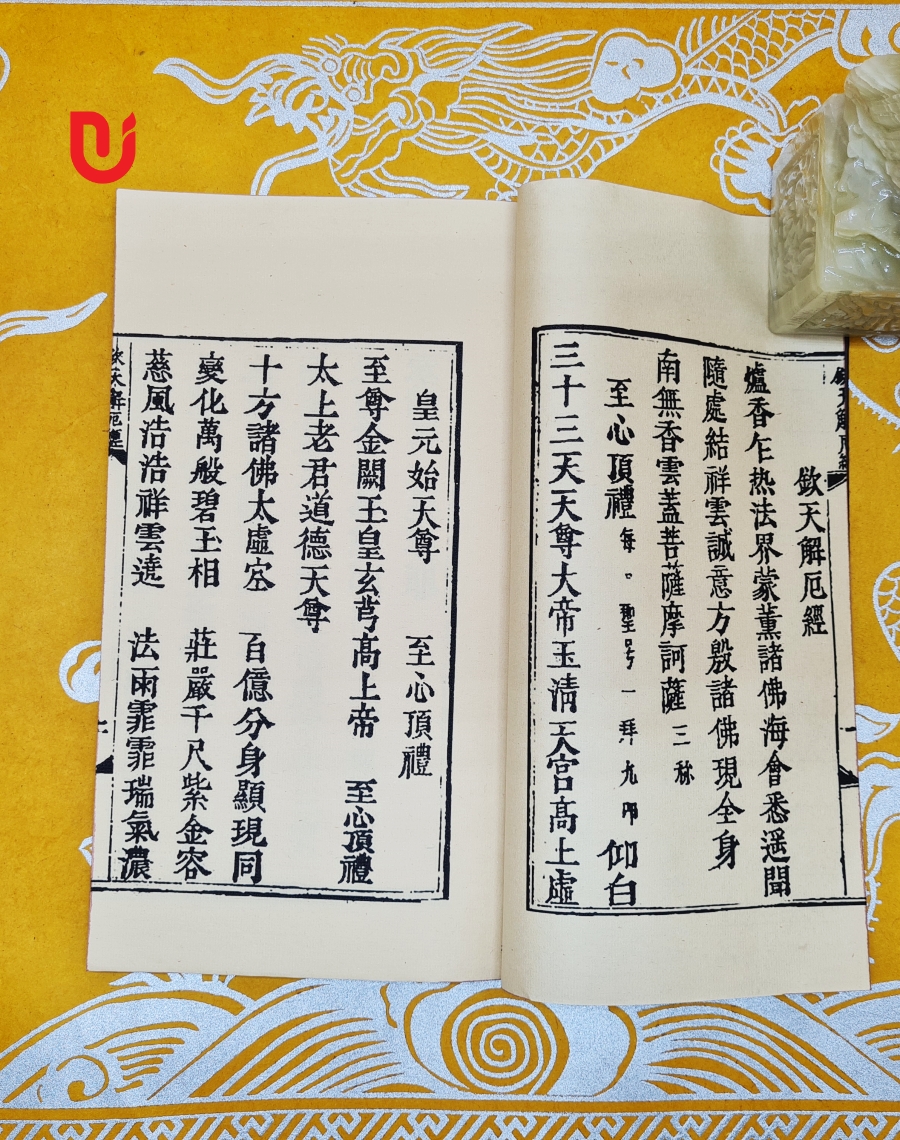 欽天解厄經
爐香乍热法界蒙薰諸佛海會悉遥聞
隨處結祥雲誠意方殷諸佛現全身
南無香雲蓋菩薩摩訶薩三称
至心頂禮每。聖号一拜九叩 仰白
三十三天天尊大帝玉清天宮髙上虛
皇元始天尊 至心頂禮
至尊金闕玉皇玄芎髙上帝 至心頂禮
太上老君道德天尊
十方諸佛太虛空 百億分身顯現同
變化萬般碧玉相 莊嚴千尺紫金容
慈風浩浩祥雲遶 法雨霏霏瑞氣濃
欽天解厄經